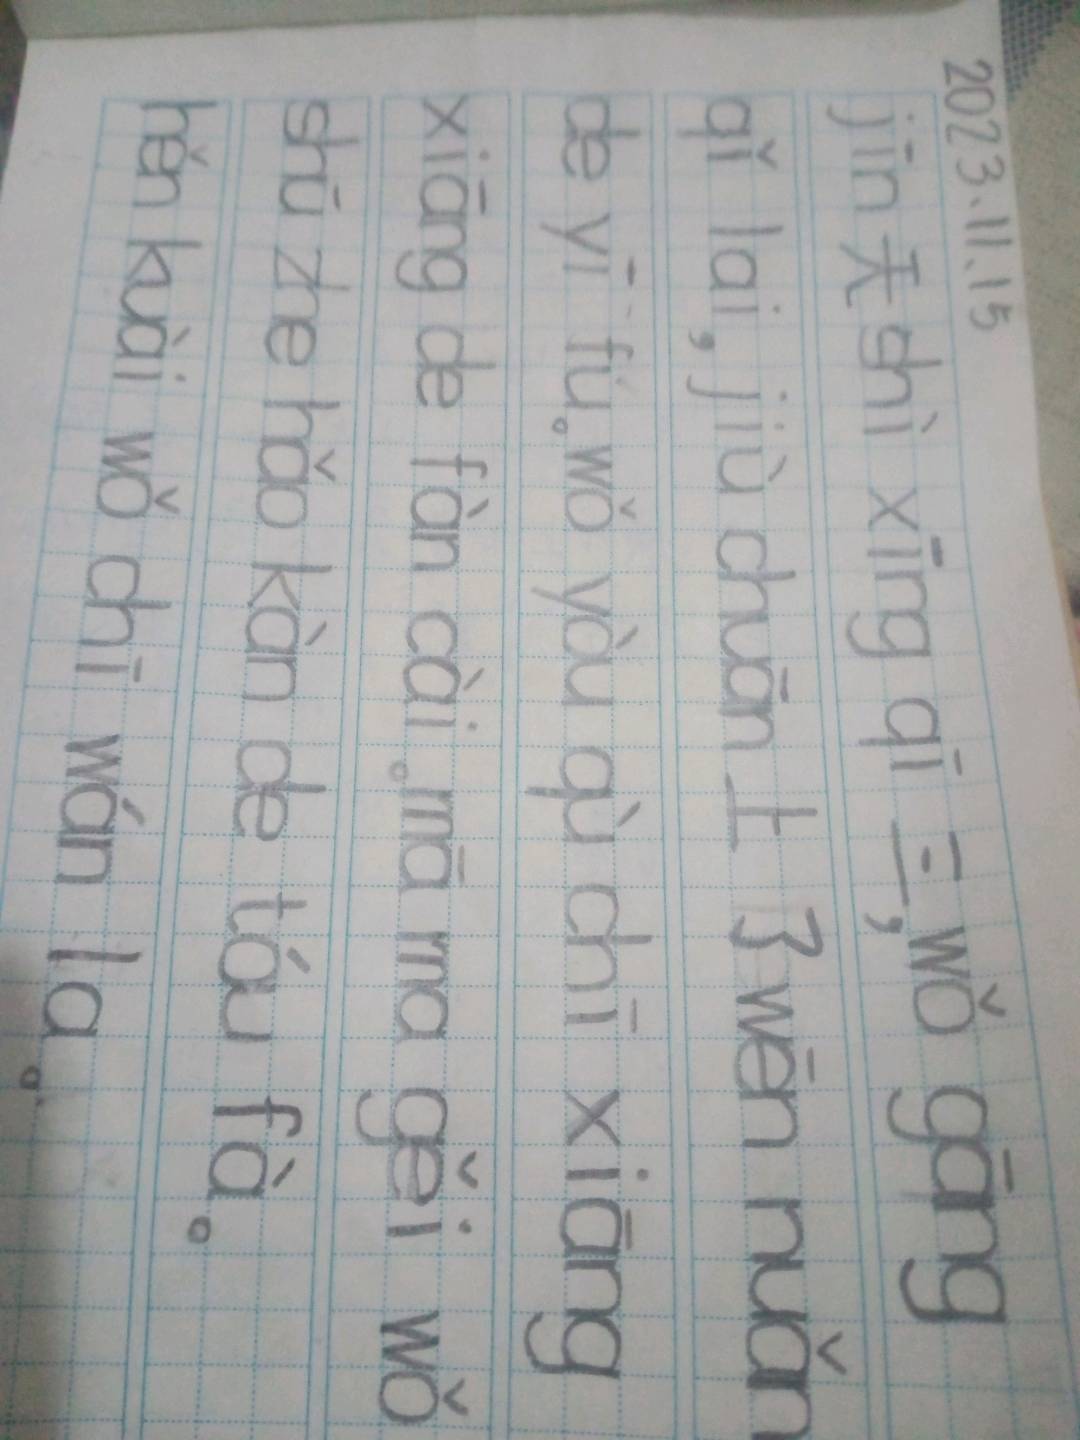 2023.11.15
jīn天shì xīng qī三,wǒ gāng
qǐ lai,jiù chuān上了wēn nuǎn
de yī fu。wǒ yòu qù chī xiāng
xiāng de fàn cài。mā ma gěi wǒ
shū zhe hǎo kàn de tóu fà。
hěn kuài wǒ chī wán la。